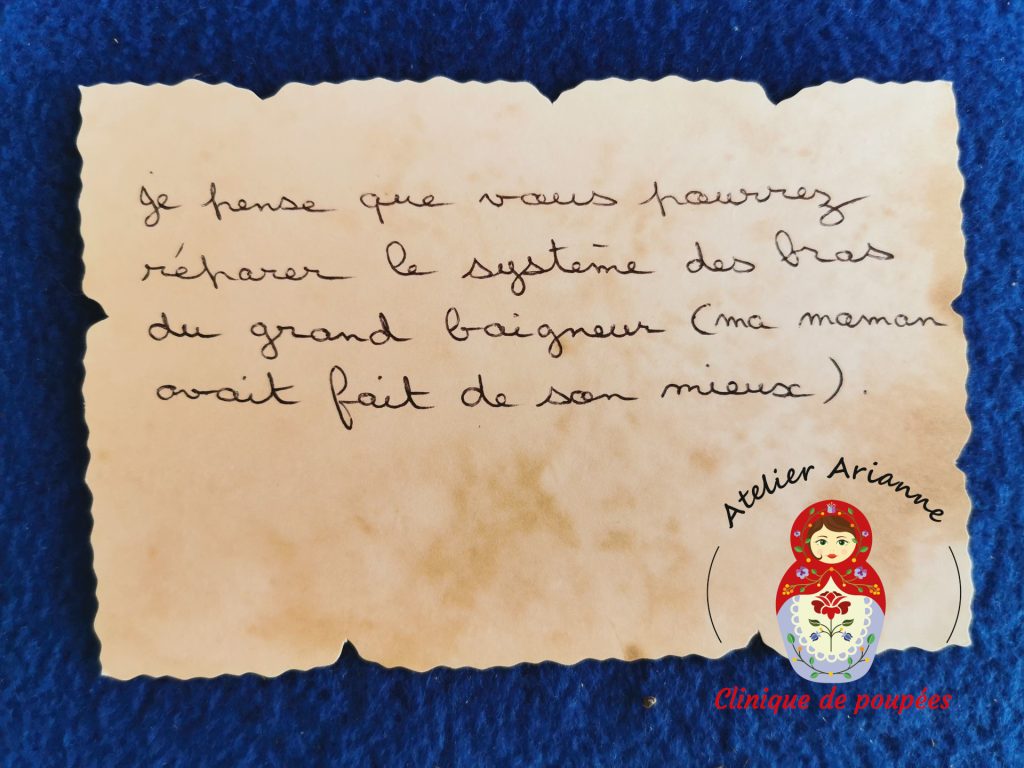 je pense que vous pourrez
réparer le système des bras
du grand baigneur (ma maman
avait fait de son mieux).
Atelier Arianne
Clinique de poupées